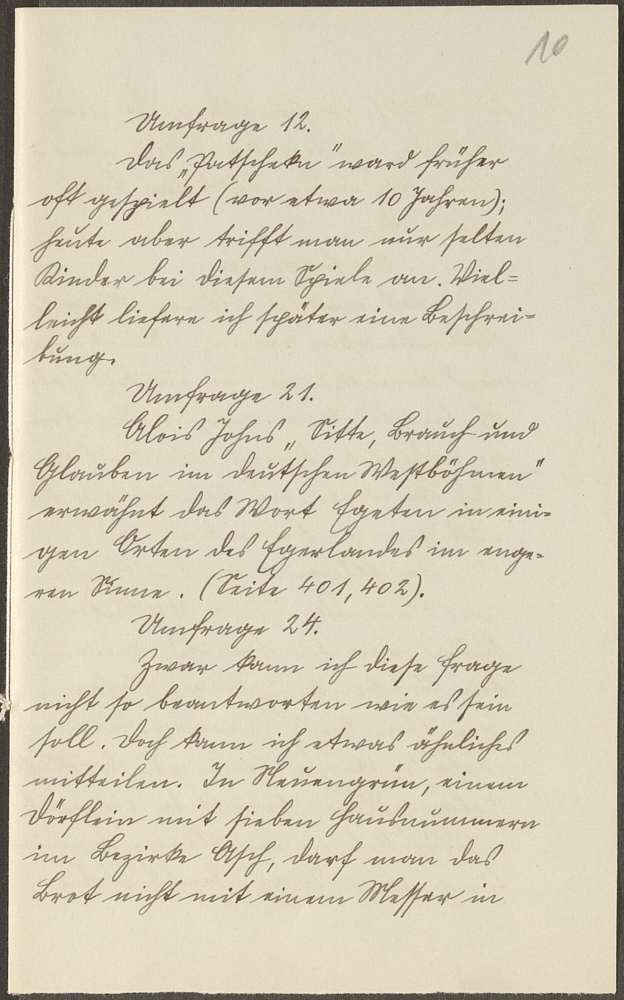 10
Umfrage 12.
Das „Patscheku" ward früher
oft gespielt (vor etwa 10 Jahren);
heute aber trifft man nur selten
Kinder bei diesem Spiele an. Viel=
leicht liefere ich später eine Beschrei=
bung.
Umfrage 21.
Alois Johns „Sitte, Brauch und
Glauben im deutschen Westböhmen"
erwähnt das Wort Egeten in eini=
gen Orten des Egerlandes im enge=
ren Sinne. (Seite 401, 402).
Umfrage 24.
Zwar kann ich diese Frage
nicht so beantworten wie es sein
soll. Doch kann ich etwas ähnliches
mitteilen. In Neuengrün, einem
Dörflein mit sieben Hausnummern
im Bezirke Asch, darf man das
Brot nicht mit einem Messer in